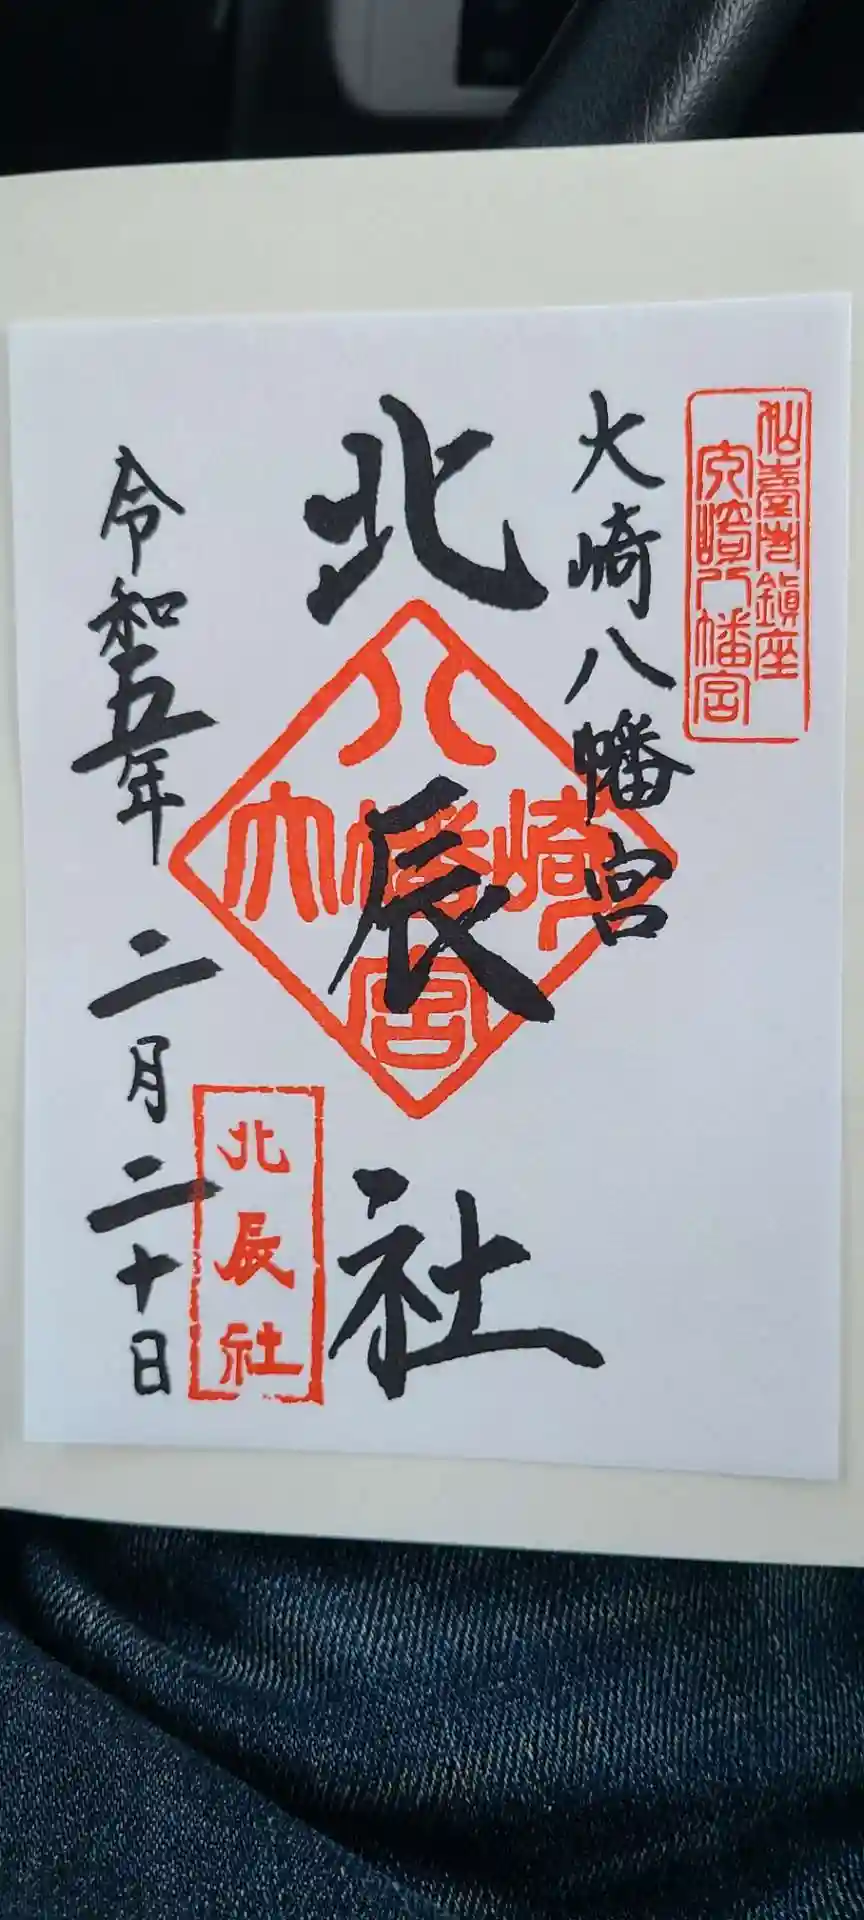 仙臺市鎮座
大崎八幡宮
大崎八幡宮
北辰社
八
大幡崎
宮
北辰社
令和五年 二月二十日